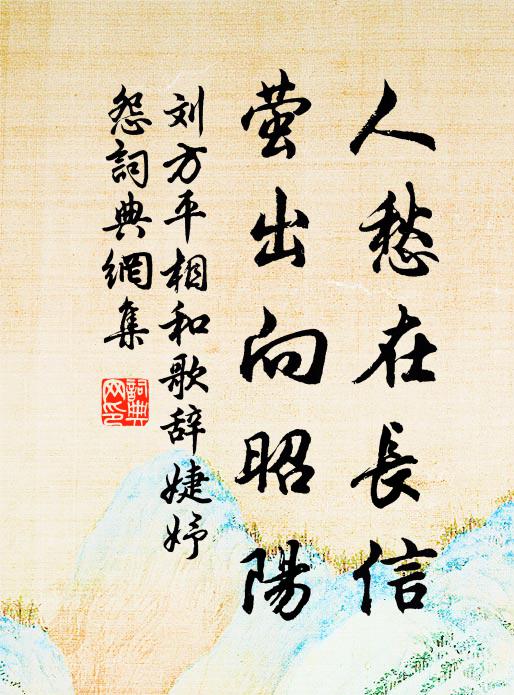 人愁在長信
萤出向昭陽
刘方平相和歌辞婕妤
怨詞典網集
詞典
网印